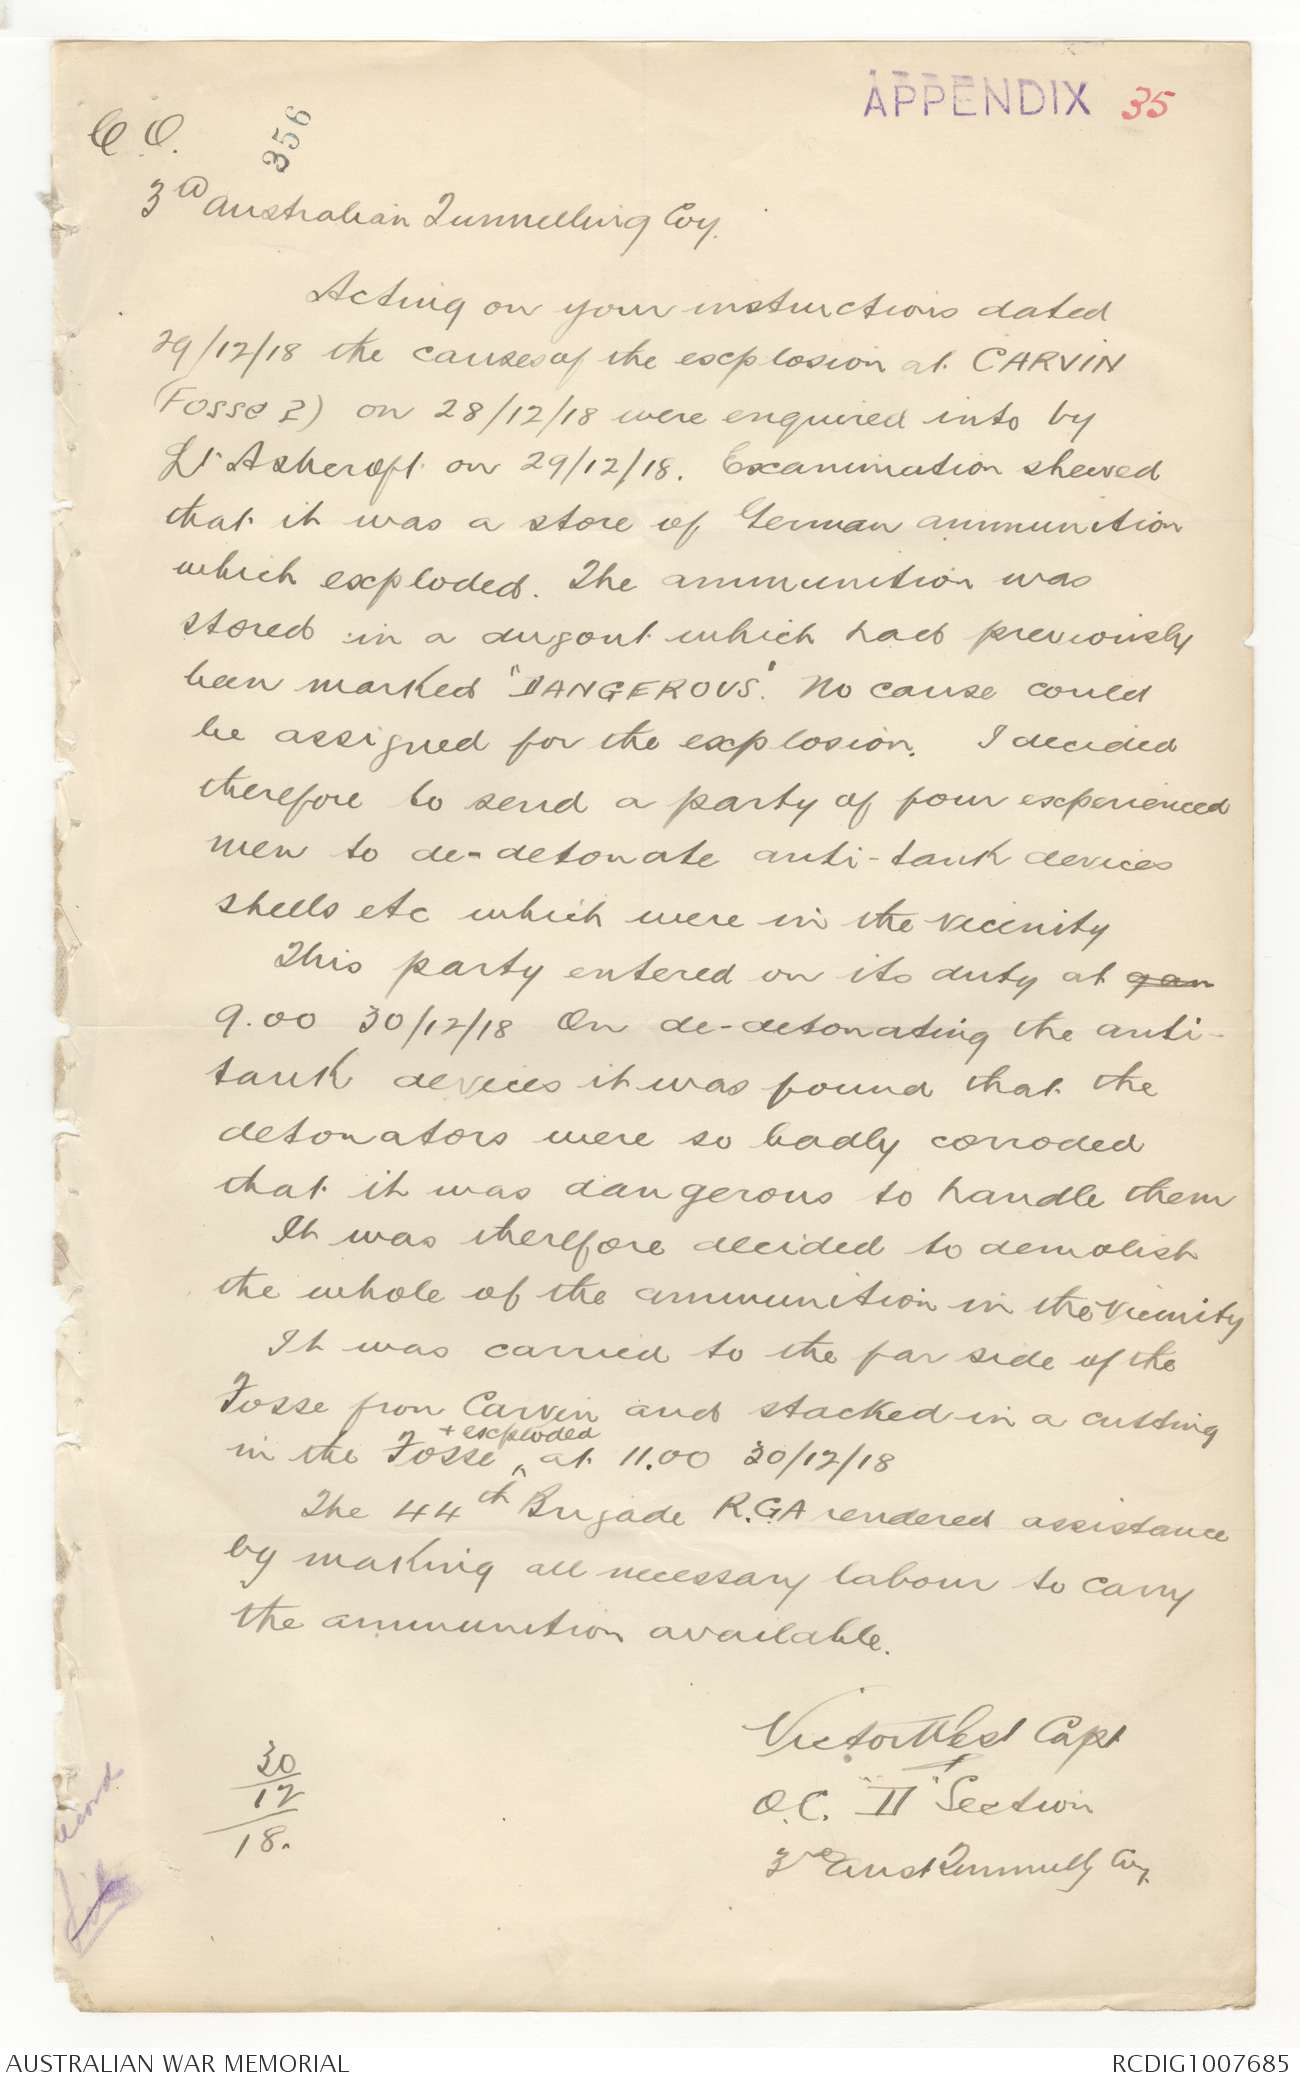 APPENDIX 35
C.O.
356
3rd Australian Tunnelling Coy.
Acting on your instructions dated
29/12/18 the causes of the explosion at CARVIN
(Fosse 2) on 28/12/18 were enquired into by
Lt Ashcroft on 29/12/18. Examination shewed
that it was a store of German ammunition
which exploded. The ammunition was
stored in a dugout which had previously
been marked "DANGEROUS". No cause could
be assigned for the explosion. I decided
therefore to send a party of four experienced
men to de-detonate anti-tank devices
shells etc which were in the vicinity
This party entered on its duty at
9.00 30/12/18 On de-detonating the anti-
tank devices it was found that the
detonators were so badly corroded
that it was dangerous to handle them
It was therefore decided to demolish
the whole of the ammunition in the vicinity
It was carried to the far side of the
Fosse from Carvin and stacked in a cutting
in the Fosse + exploded at 11.00 30/12/18
The 44th Brigade R.G.A rendered assistance
by making all necessary labour to carry
the ammunition available.
Victor West Capt
O.C. "II" Section
3rd Aust Tunnellg Coy.
30
12
18.
AUSTRALIAN WAR MEMORIAL
RCDIG1007685